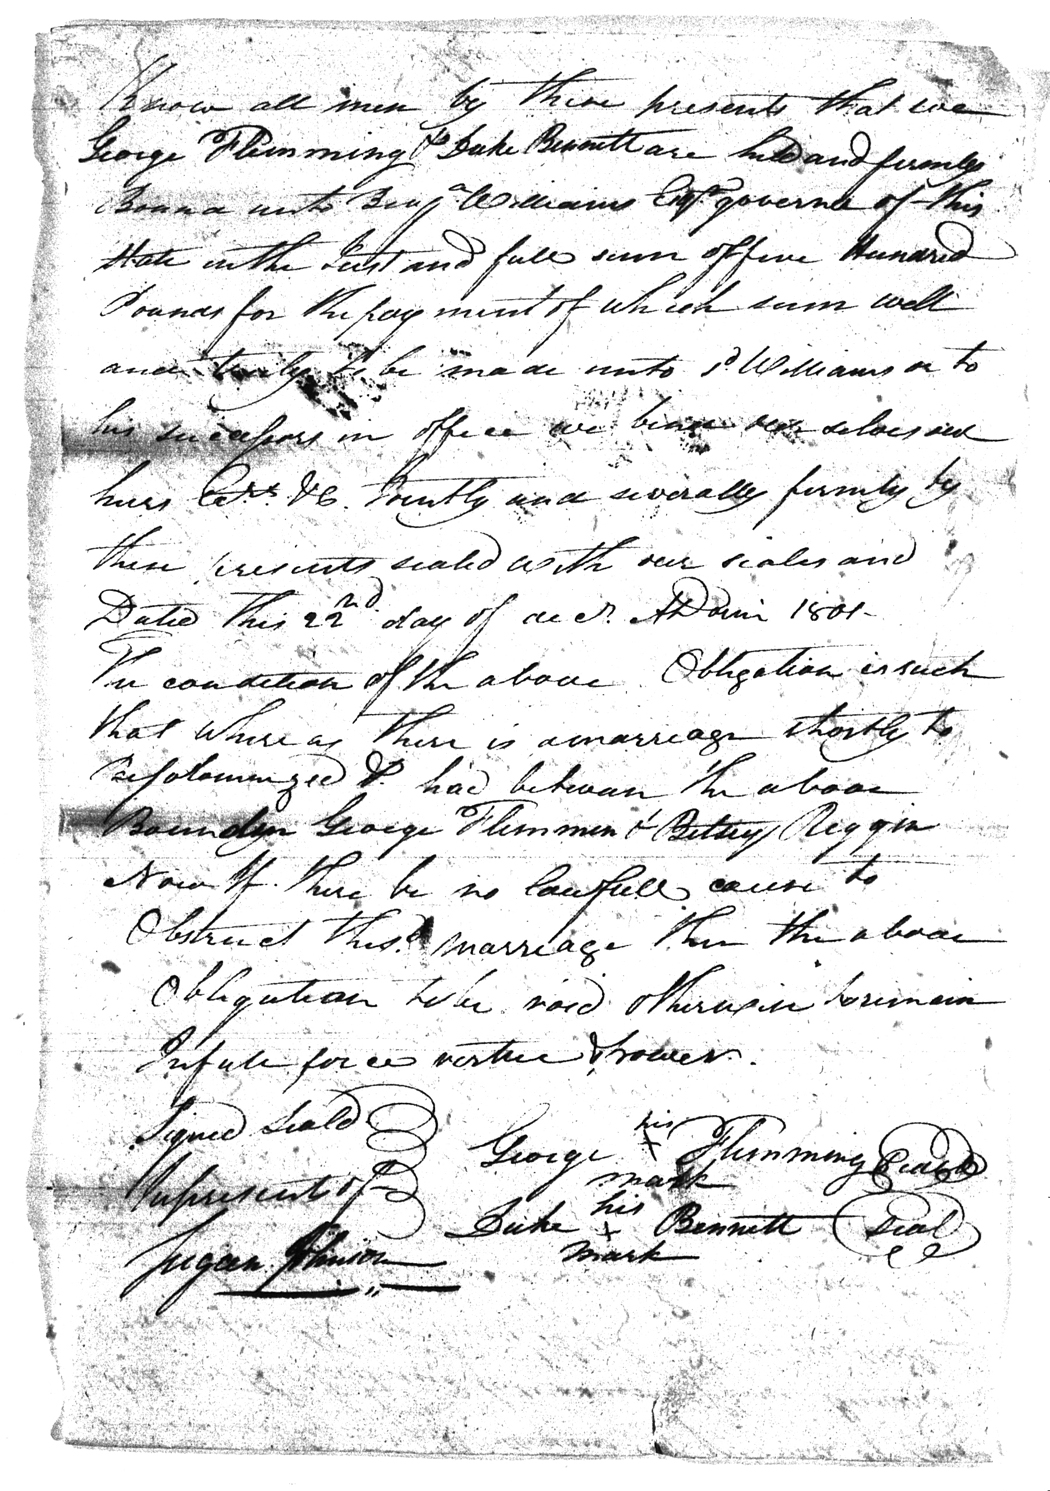 Know all men by these presents that we
George Flimming & Duke Bennett are held and firmly
Bound unto Benja Williams Esqr governer of this
State in the Just and full sum of five Hundred
Pounds for the payment of which sum well
and truly to be made unto sd Williams or to
his successors in office we bind our selves our
heirs &c. Jointly and severally firmly by
these presents sealed with our seales and
Dated this 22nd day of decr. AD 1801
The condition of the above Obligation is such
that where as there is a marriage shortly to
be solomnized & had between the above
Bounden George Flimmin & Betsey Reggin
Now If there be no lawfull cause to
Obstruct this marriage then the above
Obligation to be void otherwise to remain
In full force vertue & power.
Signed Seald
In present of
George his x mark Flimming Seal
Duke his x mark Bennett Seal
Johnson